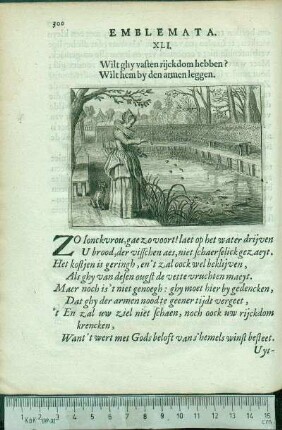 300
EMBLEMATA.
XLI.
Wilt ghy vasten rijckdom hebben?
Wilt hem by den armen leggen.
ZO Ionckvrou, gae zo voort! laet op het water drijven
U brood, der visschen aes, niet schaerselick gezaeyt.
Het kostjen is geringh, en't zal oock wel beklijven,
Als ghy van desen ougst de vette vruchten maeyt.
Maer noch is't niet genoegh: ghy moet hier by gedencken,
Dat ghy der armen nood te geener tijdt vergeet,
't En zal uw ziel niet schaen, noch oock uw rijckdom
krencken,
Want't wert met Gods beloft van's hemels winst besteet.
Uyt-
1 2 3 4 5 6 7 8 9 10 11 12 13 14 15
cm